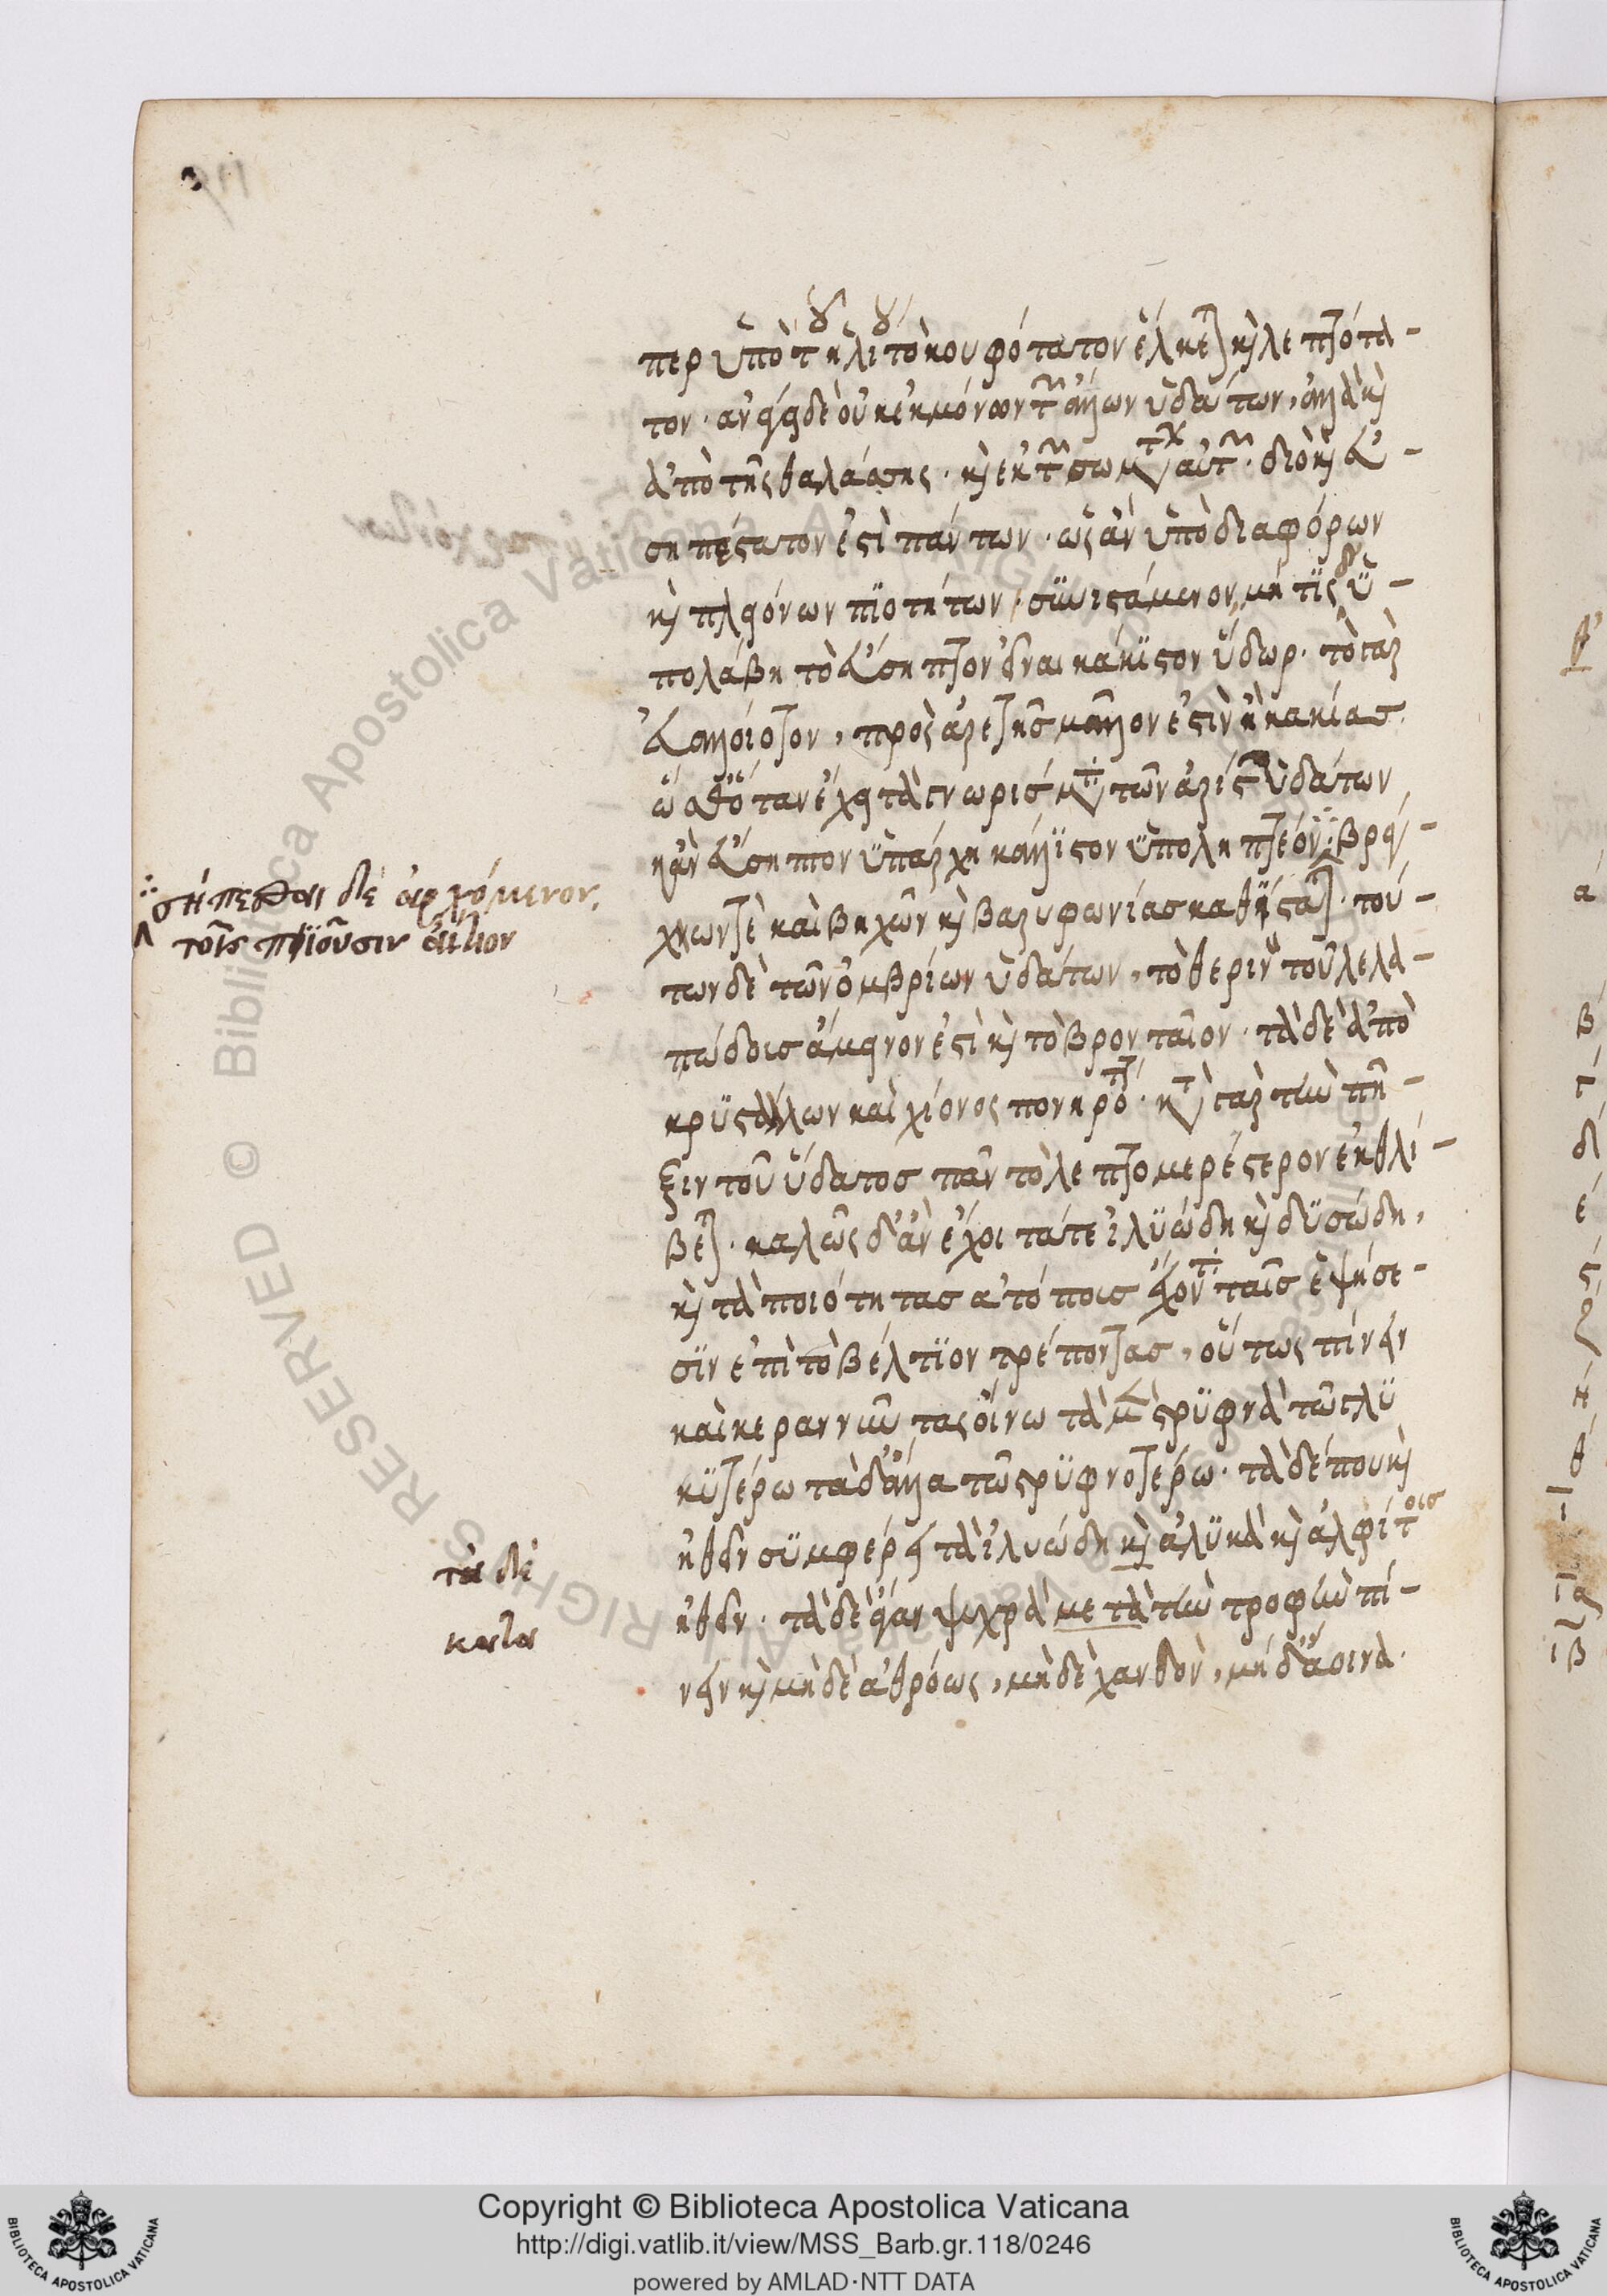 περ ὑπὸ τοῦ ἡλίου τὸ κουφότατον ἕλκεται καὶ λεπτότα-
τον. ἀνάγει δὲ οὐκ ἐκ μόνον τῶν ἄλλων ὑδάτων, ἀλλὰ καὶ
ἀπὸ τῆς θαλάσσης. καὶ ἐκ τῶν σωμάτων αὐτῶν. διὸ καὶ εὐ-
σηπτότατον ἐστὶ πάντων. ὡς ἂν ὑπὸ διαφόρων
καὶ πλειόνων ποιοτήτων συνιστάμενον, μή τις δὲ ὑ-
πολάβη τὸ εὔσηπτον εἶναι κάκιστον ὕδωρ. τὸ γὰρ
εὐαλλοίωτον, πρὸς ἀρετῆς μᾶλλον ἐστὶν ἢ κακίας.
ὥσθ' ὅταν ἔχει τὰ γνωρίσματα τῶν ἀρίστων ὑδάτων
κἂν εὔσηπτον ὑπάρχη κάλλιστον ὑποληπτέον ∴ βρά-
χων τὲ καὶ βηχῶν καὶ βαρυφωνίας καθίσταται. τού-
των δὲ τῶν ὀμβρίων ὑδάτων, τὸ θερινὸν τοῦ λελα-
πώδους ἄμεινον ἐστὶ καὶ τὸ βρονταῖον. τὰ δὲ ἀπὸ
κρυστάλλων καὶ χιόνος πονηρότατα. κατὰ γὰρ τὴν πῆ-
ξιν τοῦ ὕδατος πᾶν τὸ λεπτομερέστερον ἐκθλί-
βεται. καλῶς δ' ἂν ἔχοι τά τε ἰλυώδη καὶ δυσώδη,
καὶ τὰ ποιότητας ἀτόποις ἔχοντα ταῖς ἑψήσε-
σιν ἐπὶ τὸ βέλτιον τρέποντας, οὕτως πίνειν
καὶ κεραννύντας οἴνω τὰ μὲν στρυφνὰ τῶ γλυ
κυτέρω τὰ δ' ἄλλα τῶ στρυφνοτέρω. τὰ δέ που καὶ
ἠθεῖν συμφέρει τὰ ἰλυώδη καὶ ἁλυκὰ καὶ ἀλφίτοις
ἠθεῖν. τὰ δὲ ἄγαν ψυχρὰ μετὰ τὴν τροφὴν πί-
νειν καὶ μὴ δὲ ἀθρόως, μὴ δὲ χανδὸν, μή δ'
∴ σήπεσθαι δὲ ἀρχόμενον,
τοῖς πίουσιν αἴτιον
τὰ δὲ
κατα
Copyright © Biblioteca Apostolica Vaticana
http://digi.vatlib.it/view/MSS_Barb.gr.118/0246
powered by AMLAD·NTT DATA